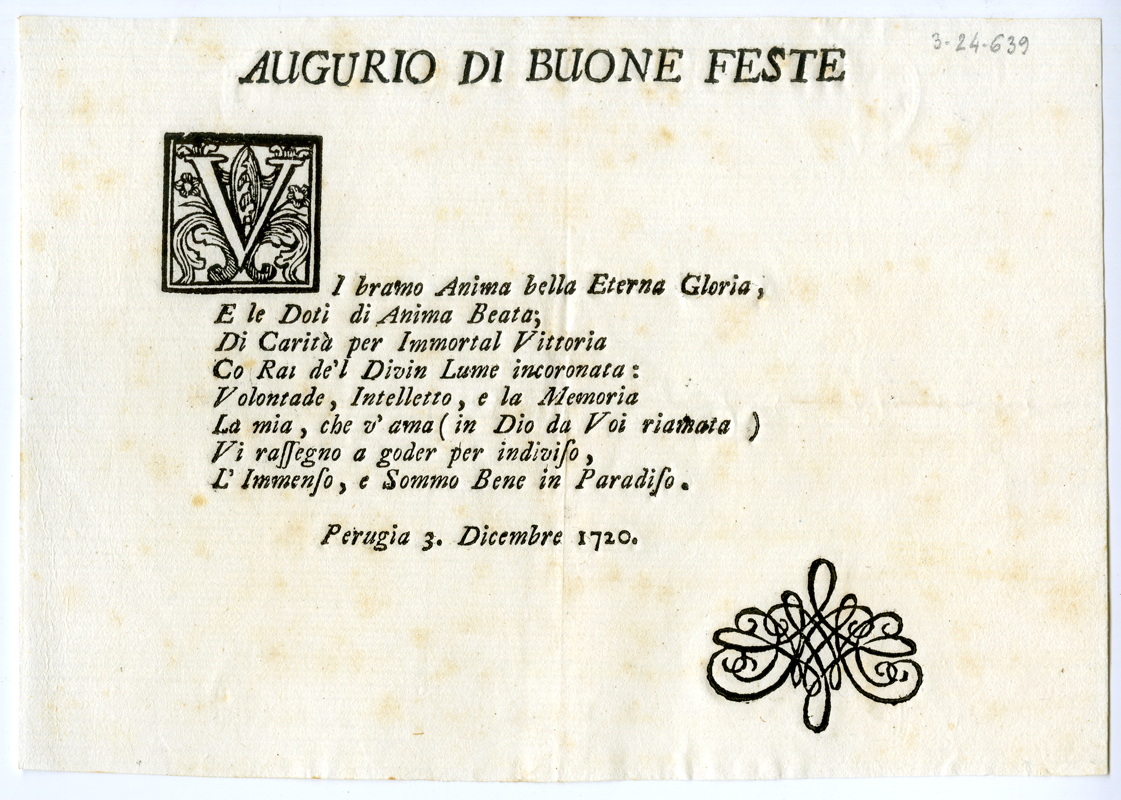 3-24-639
AUGURIO DI BUONE FESTE
VI bramo Anima bella Eterna Gloria,
E le Doti di Anima Beata;
Di Carità per Immortal Vittoria
Co Rai de'l Divin Lume incoronata:
Volontade, Intelletto, e la Memoria
La mia, che v'ama (in Dio da Voi riamata)
Vi raſſegno a goder per indiviſo,
L'Immenſo, e Sommo Bene in Paradiſo.
Perugia 3. Dicembre 1720.